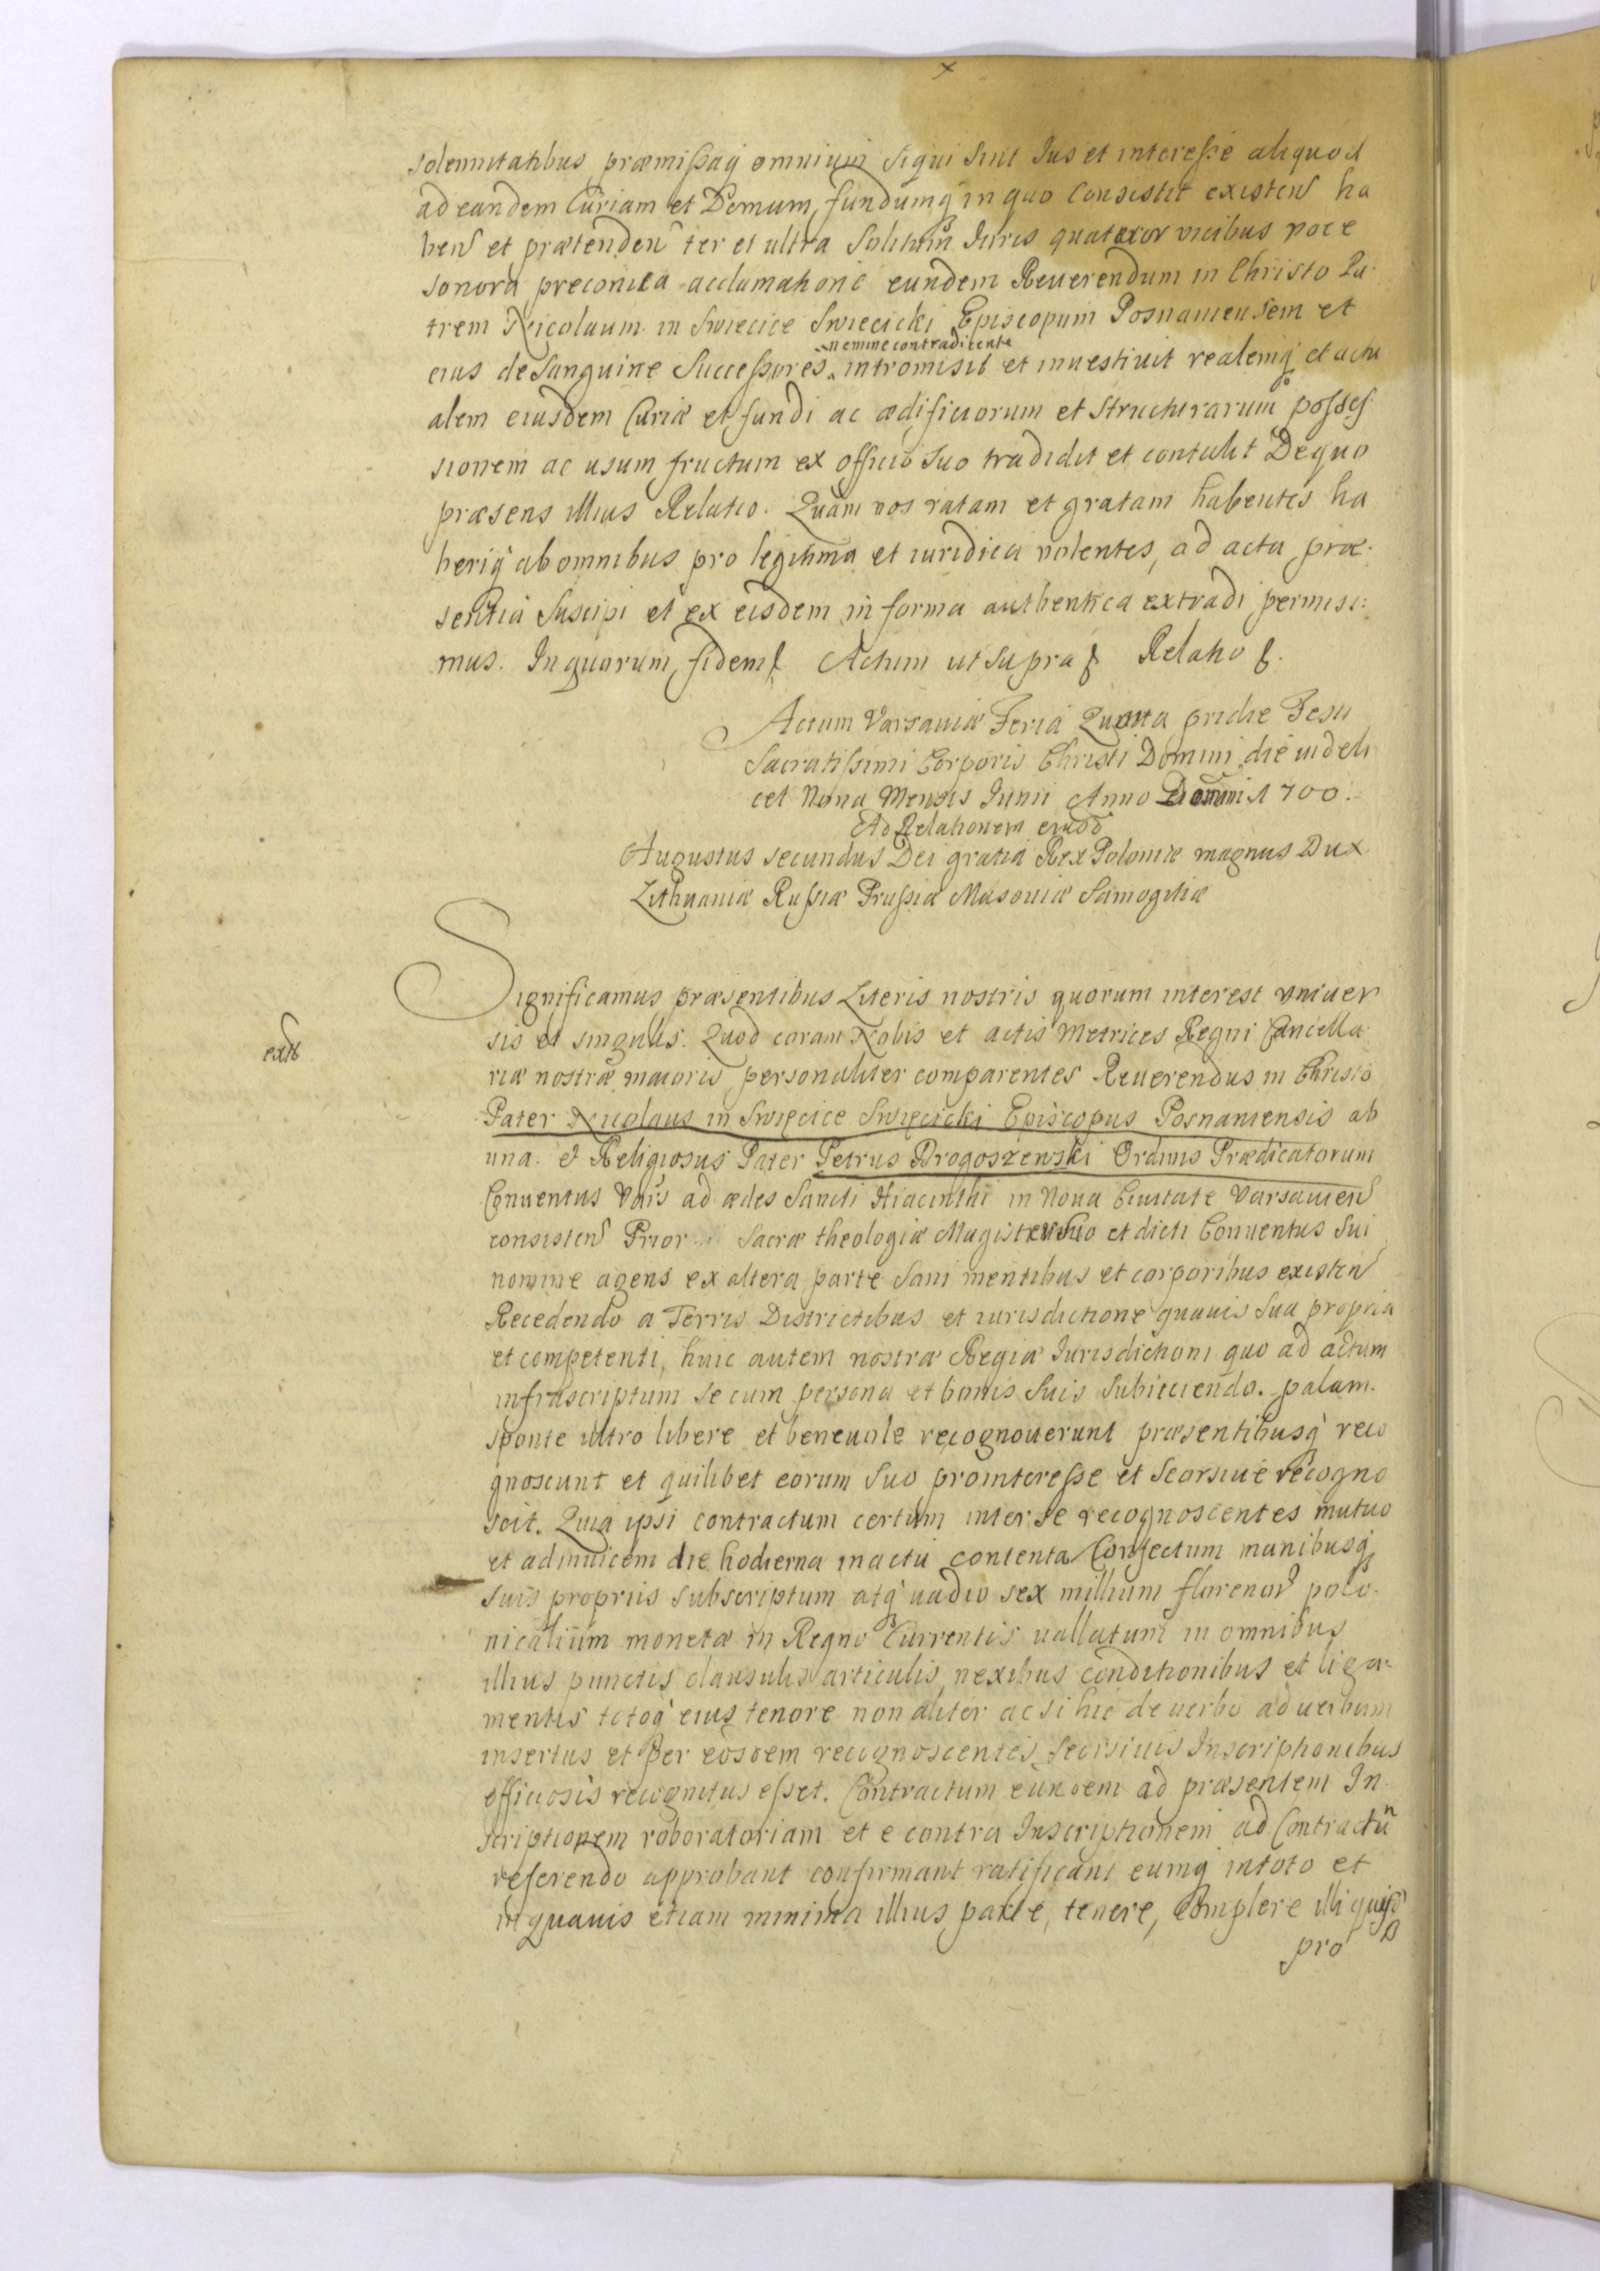 x
solennitatibus præmissaq omnium siqui sint Jus et interesse aliquod
ad eandem Curiam et Domum, fundumq in quo Consistit existen ha
ben et prætenden ter et ultra Solitum Juris quatuor vicibus voce
sonora preconica acclamatione eundem Reuerendum in Christo Pa:
trem Nicolaum in Swiecice Swiecicki Episcopum Posnaniensem et
nemine contradicente
eius de Sanguine Successores intromisit et inuestiuit realemq et actu
alem eiusdem Curiæ et fundi ac ædificiorum et Structurarum posses
sionem ac usum fructum ex officio Suo tradidit et contulit De quo
præsens illius Relatio. Quam nos ratam et gratam habentes ha
beriq ab omnibus pro legitima et iuridica volentes, ad acta præ:
sentia Suscipi et ex eisdem in forma authentica extradi permisi:
mus. In quorum fidem Actum ut supra Relatio
Actum Varsauiæ Feria Quarta pridie Festi
Sacratissimi Corporis Christi Domini die videli
cet Nona Mensis Junii Anno Domini 1700.
Ad Relationem eiusd
Augustus secundus Dei gratia Rex Poloniæ magnus Dux
Lithuaniæ Russiæ Prussiæ Masouiæ Samogitiæ
Significamus præsentibus Literis nostris quorum interest vniuer
sis et singulis. Quod coram Nobis et actis Metrices Regni Cancella
riæ nostræ maioris personaliter comparentes Reuerendus in Christo
Pater Nicolaus in Swięcice Swięcicki Episcopus Posnaniensis ab
una. et Religiosus Pater Petrus Drogoszewski Ordinis Prædicatorum
Conuentus Vars ad ædes Sancti Hiacinthi in Noua Ciuitate Varsauien
consisten Prior Sacræ theologiæ Magister Suo et dicti Conuentus Sui
nomine agens ex altera parte Sani mentibus et corporibus existen
Recedendo a Terris Districtibus et iurisdictione quauis Sua propria
et competenti, huic autem nostræ Regiæ Jurisdictioni quo ad actum
infrascriptum se cum persona et bonis Suis Subiiciendo. palam.
sponte ultro libere et beneuole recognouerunt præsentibusq reco
gnoscunt et quilibet eorum Suo prointeresse et Seorsiue recogno
scit. Quia ipsi contractum certum inter se recognoscentes mutuo
et adinuicem die hodierna in actu contenta Confectum manibusq
suis propriis subscriptum atq vadio sex millium florenor polo.
nicalium monetæ in Regno Currentis uallatum in omnibus
illius punctis clausulis articulis nexibus conditionibus et liga
mentis totoq eius tenore non aliter ac si hic de uerbo ad uerbum
insertus et per eosdem recognoscentes Seorsiuis Inscriptionibus
officiosis recognitus esset. Contractum eundem ad præsentem In
scriptionem roboratoriam et e contra Inscriptionem ad Contractu
referendo approbant confirmant ratificant eumq in toto et
in quauis etiam minima illius parte, tenere, Complere illiq
pro